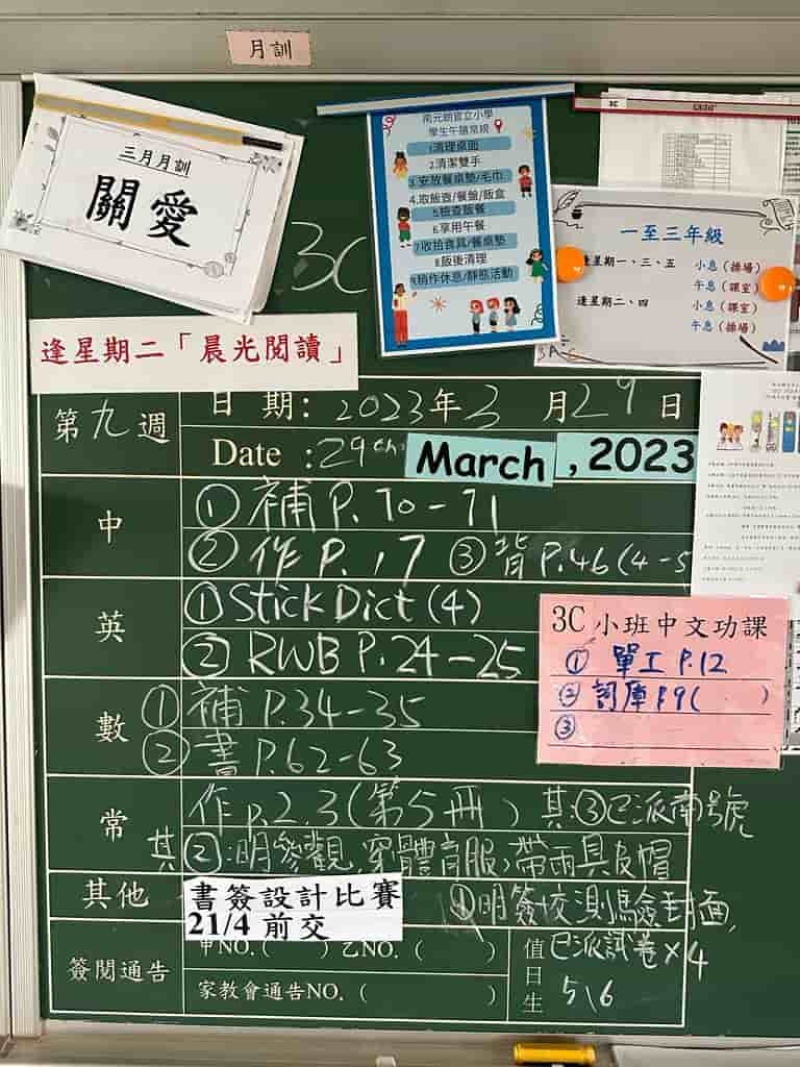 月訓
三月月訓
關愛
3C
南元朗官立小學
學生午膳常規
1.清理桌面
2.清潔雙手
3.安放餐桌墊/毛巾
4.取飯壺/餐盤/飯盒
5.檢查飯餐
6.享用午餐
7.收拾食具/餐桌墊
8.飯後清理
9.稍作休息/靜態活動
一至三年級
逢星期一、三、五 小息(操場)
午息(課室)
逢星期二、四 小息(課室)
午息(操場)
逢星期二「晨光閱讀」
第九週
日 期: 2023年3月29日
Date :29th March, 2023
中
①補 P.70-71
②作 P.17 ③背 P.46(4-5
英
①Stick Dict (4)
②RWB P.24-25
3C 小班中文功課
① 單工 P.12
② 詞庫 P.9( )
③
數
①補 P.34-35
②書 P.62-63
常
作 P.2,3(第5冊) 其:③已派南號
其②:明參觀,穿體育服,帶雨具皮帽
其他
書簽設計比賽
21/4 前交
①明簽校測驗封面,
已派試卷×4
簽閱通告
甲NO.( ) 乙NO.( )
家教會通告NO.( )
值日生
5\6